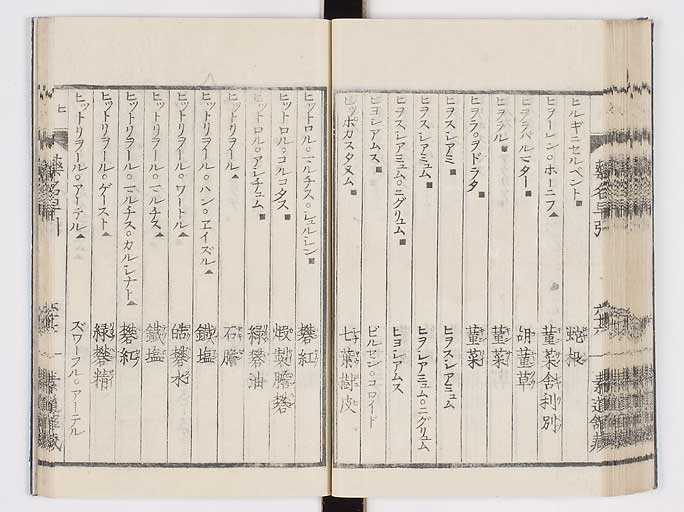 ヒルギニセルペント■ 蛇根
ヒヲーレン○ホーニフ▲ 菫菜舎利別
ヒヲラバルバター■ 胡菫草
ヒヲラル■ 菫菜
ヒヲラ○ヲドラタ■ 菫菜
ヒヲスレアミ■ ヒヲスレアミュム
ヒヲスレアミュム■ ヒヲレアミュム○ニグリュム
ヒヲスレアミュム○ニグリュム■ ヒヨレアムス
ヒヨレアムス■ ビルセン○コロイド
ヒッポカスタヌム■ 七葉樹皮
藥名早引
ヒットロル○マルチス○レルレン■ 礬紅
ヒットロル○コルコタス■ 煆製膽礬
ヒットロル○アンチュム■ 緑礬油
ヒットリヲール▲ 石膽
ヒットリヲール○ハン○エイズル▲ 鐵塩
ヒットリヲール○ワートル▲ 皓礬水
ヒットリヲール○マルチス▲ 鐵塩
ヒットリヲール○マルチス○カルシナート▲ 礬紅
ヒットリヲール○ゲースト▲ 緑礬精
ヒットリヲール○アーテル▲ ズワーフル○アーテル
ヒ
藥名早引